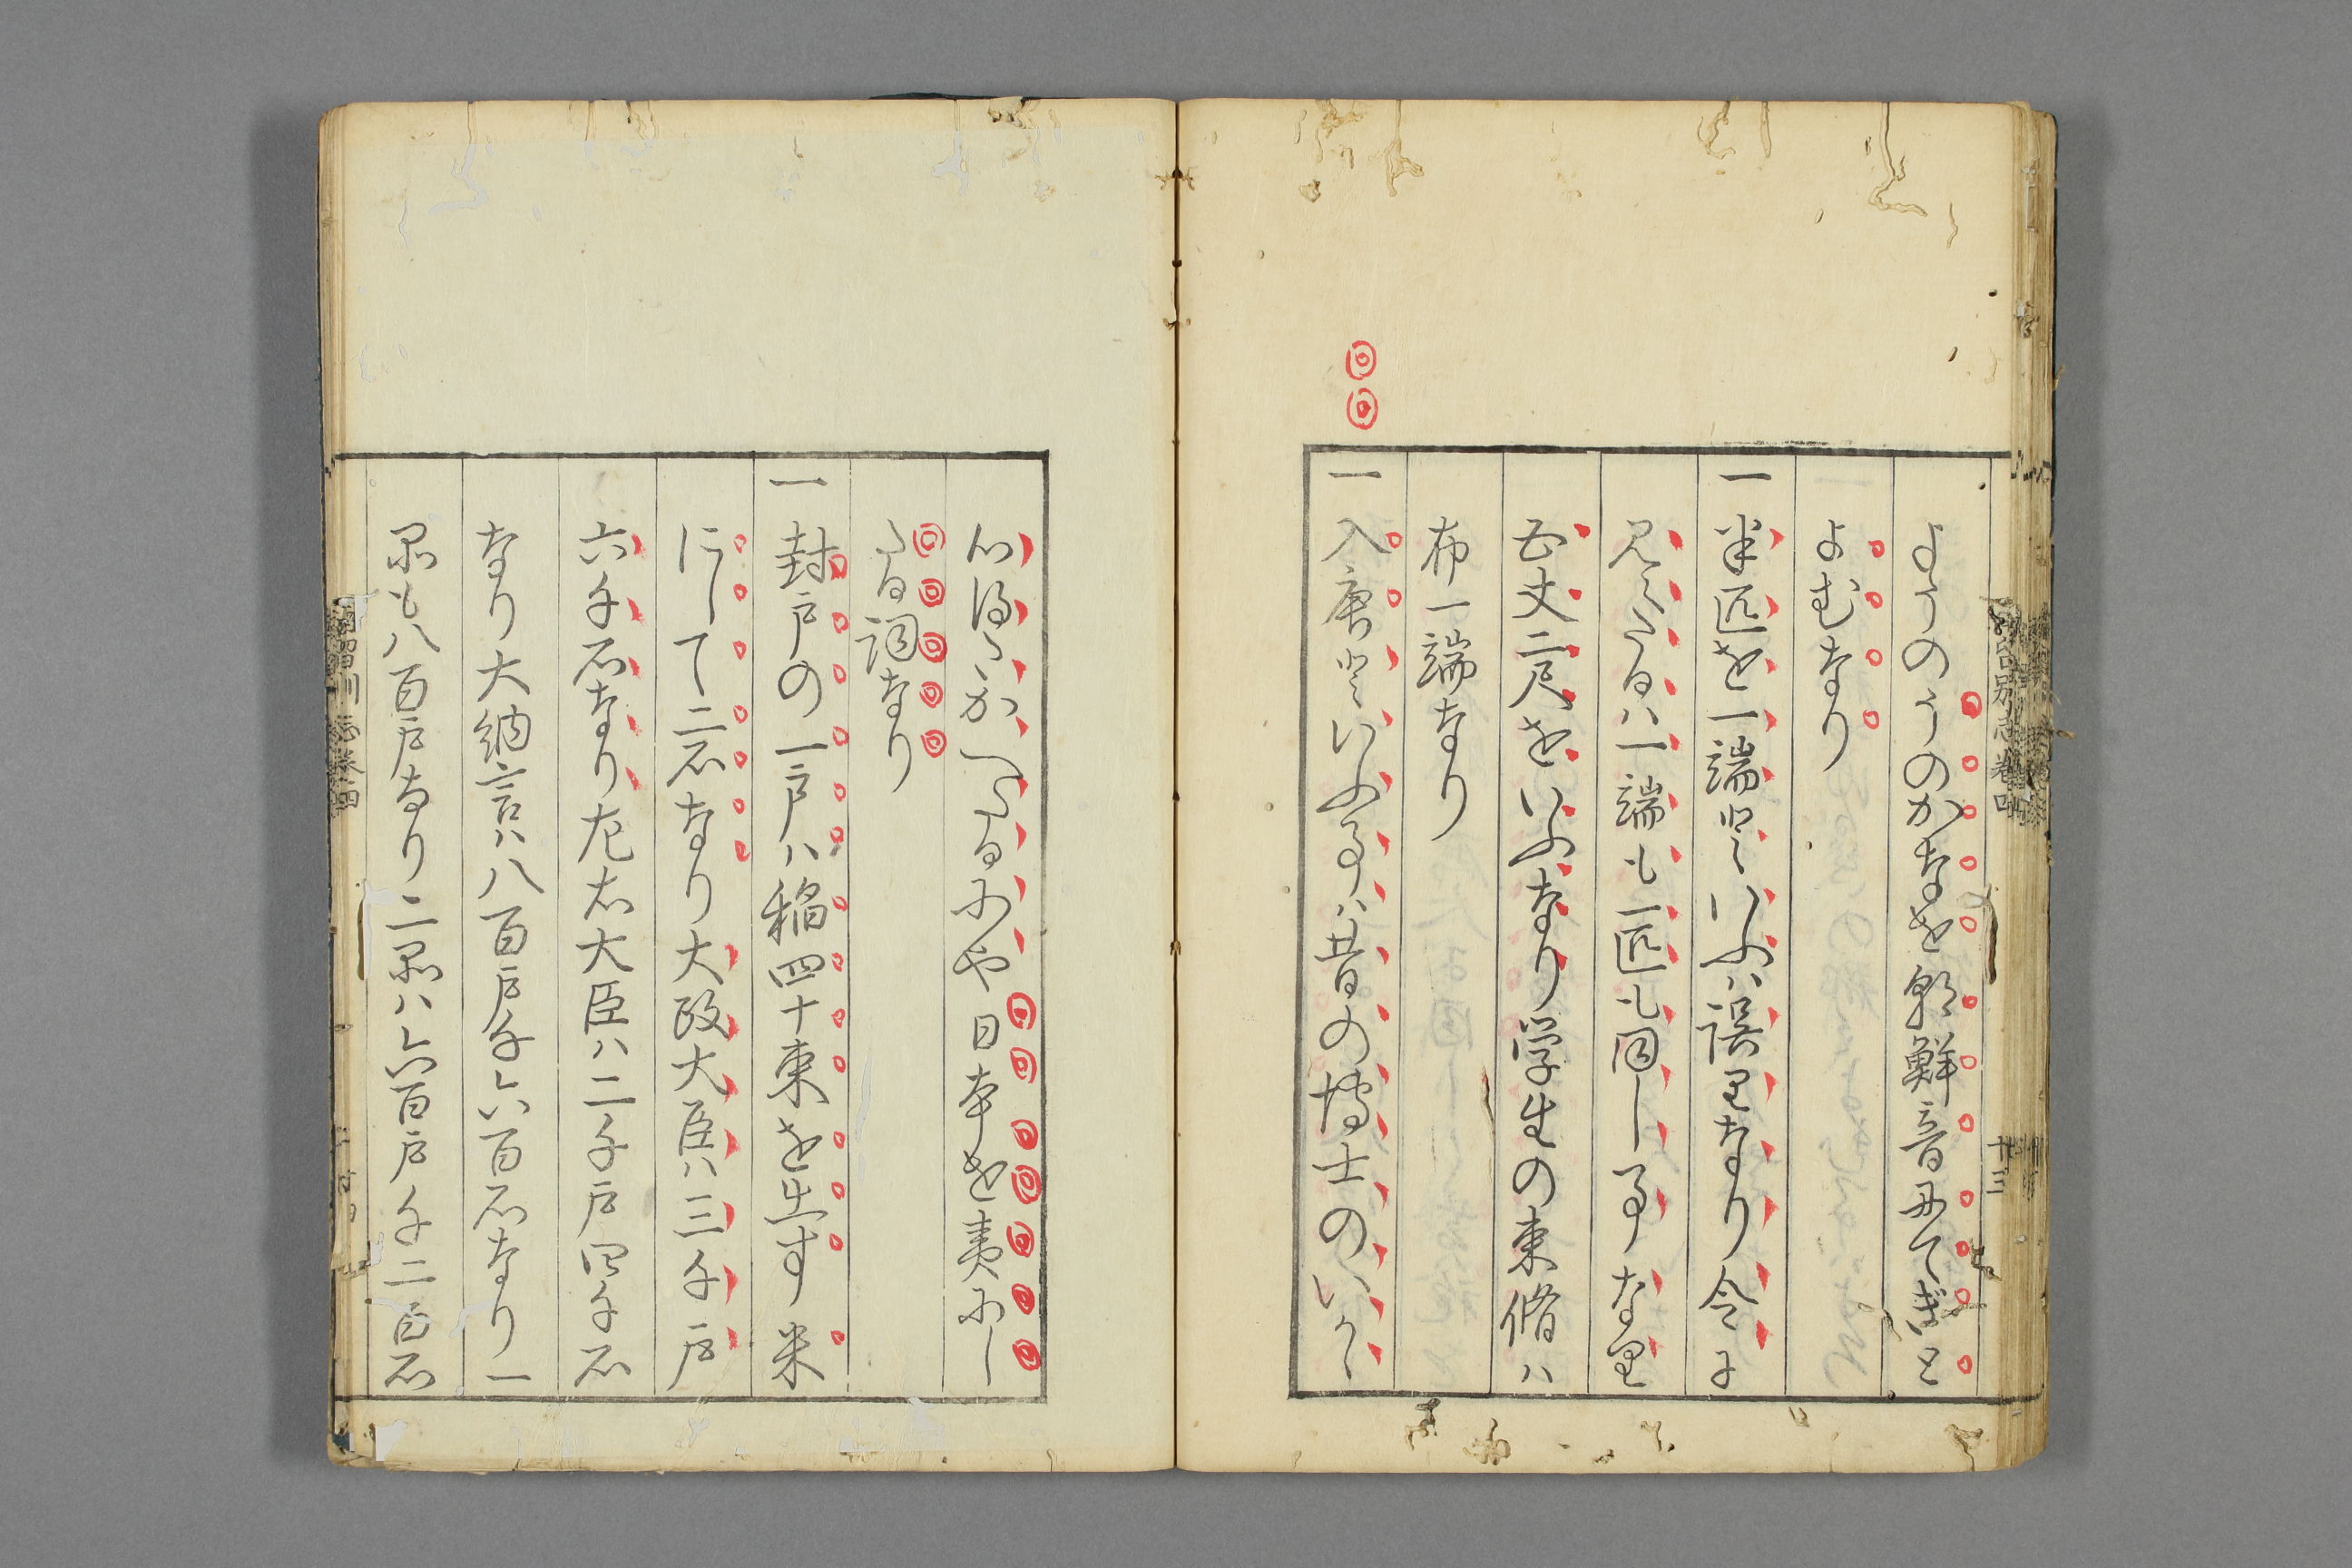 ようのうのかなを朝鮮音にてぎと
よむなり
一 半匹を一端といふハ誤りなり令に
見えたるハ一端も一匹も同し事なり
五丈二尺をいふなり学生の束脩ハ
布一端なり
一 入唐といふ事ハ昔の博士のいかゝ
心得
たる詞なり
日本を夷にし
一 封戸の一戸ハ稲四十束を出す米
にして二石なり大政大臣ハ三千戸
六千石なり左右大臣ハ二千戸四千石
なり大納言ハ八百戸千六百石なり一
品も八百戸なり二品ハ六百戸千二百石